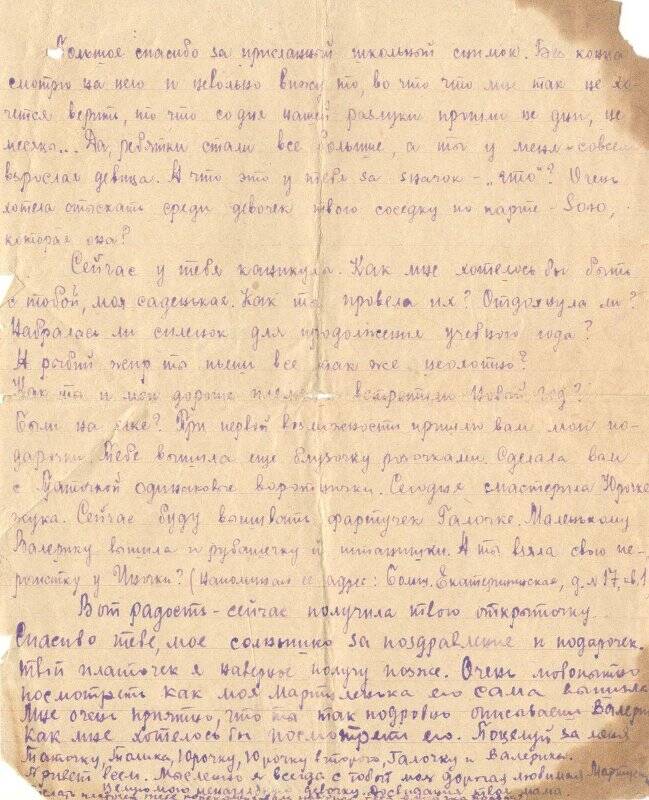 Большое спасибо за присланный школьный снимок. Без конца
смотрю на него и невольно вижу то, во что мне так не хо-
чется верить, то что со дня нашей разлуки прошли не дни, не
месяцы... Да, ребятки стали все большие, а ты у меня - совсем
взрослая девица. А что это у тебя за значок - „ГТО"? Очень
хотела отыскать среди девочек твою соседку по парте - Зою,
которая она?
Сейчас у тебя каникулы. Как мне хотелось бы быть
с тобой, моя саденькая. Как ты провела их? Отдохнула ли?
Набралась ли силенок для продолжения учебного года?
А рыбий жир ты пьешь все так же неохотно?
Как ты и мои дорогие встретили Новый год?
Были на елке? При первой возможности пришлю вам мои по-
дарочки. Тебе вышила еще блузочку розочками. Сделала вам
с Таточкой одинаковые воротнички. Сегодня смастерила Юрочке
жука. Сейчас буду вышивать фартучек Галочке. Маленькому
Валерику вышила и рубашечку и штанишки. А ты взяла свою пе-
у Ниночки? (Напоминаю ее адрес: Больш. Екатерининская, д. №17, кв.1
Вот радость - сейчас получила твою открыточку.
Спасибо тебе, мое солнышко за поздравление и подарочек.
Твой платочек я наверное получу позже. Очень любопытно
посмотреть как моя Мартуленька его сама вышила.
Мне очень приятно, что ты так подробно описываешь Валерика
Как мне хотелось бы посмотреть его. Поцелуй за меня
Таточку, Талика, Юрочку, Юрочку второго, Галочку и Валерика.
Привет всем. Мысленно я всегда с тобой моя дорогая любимая
Целую мою ненаглядную девочку. Досвидания твоя мама.